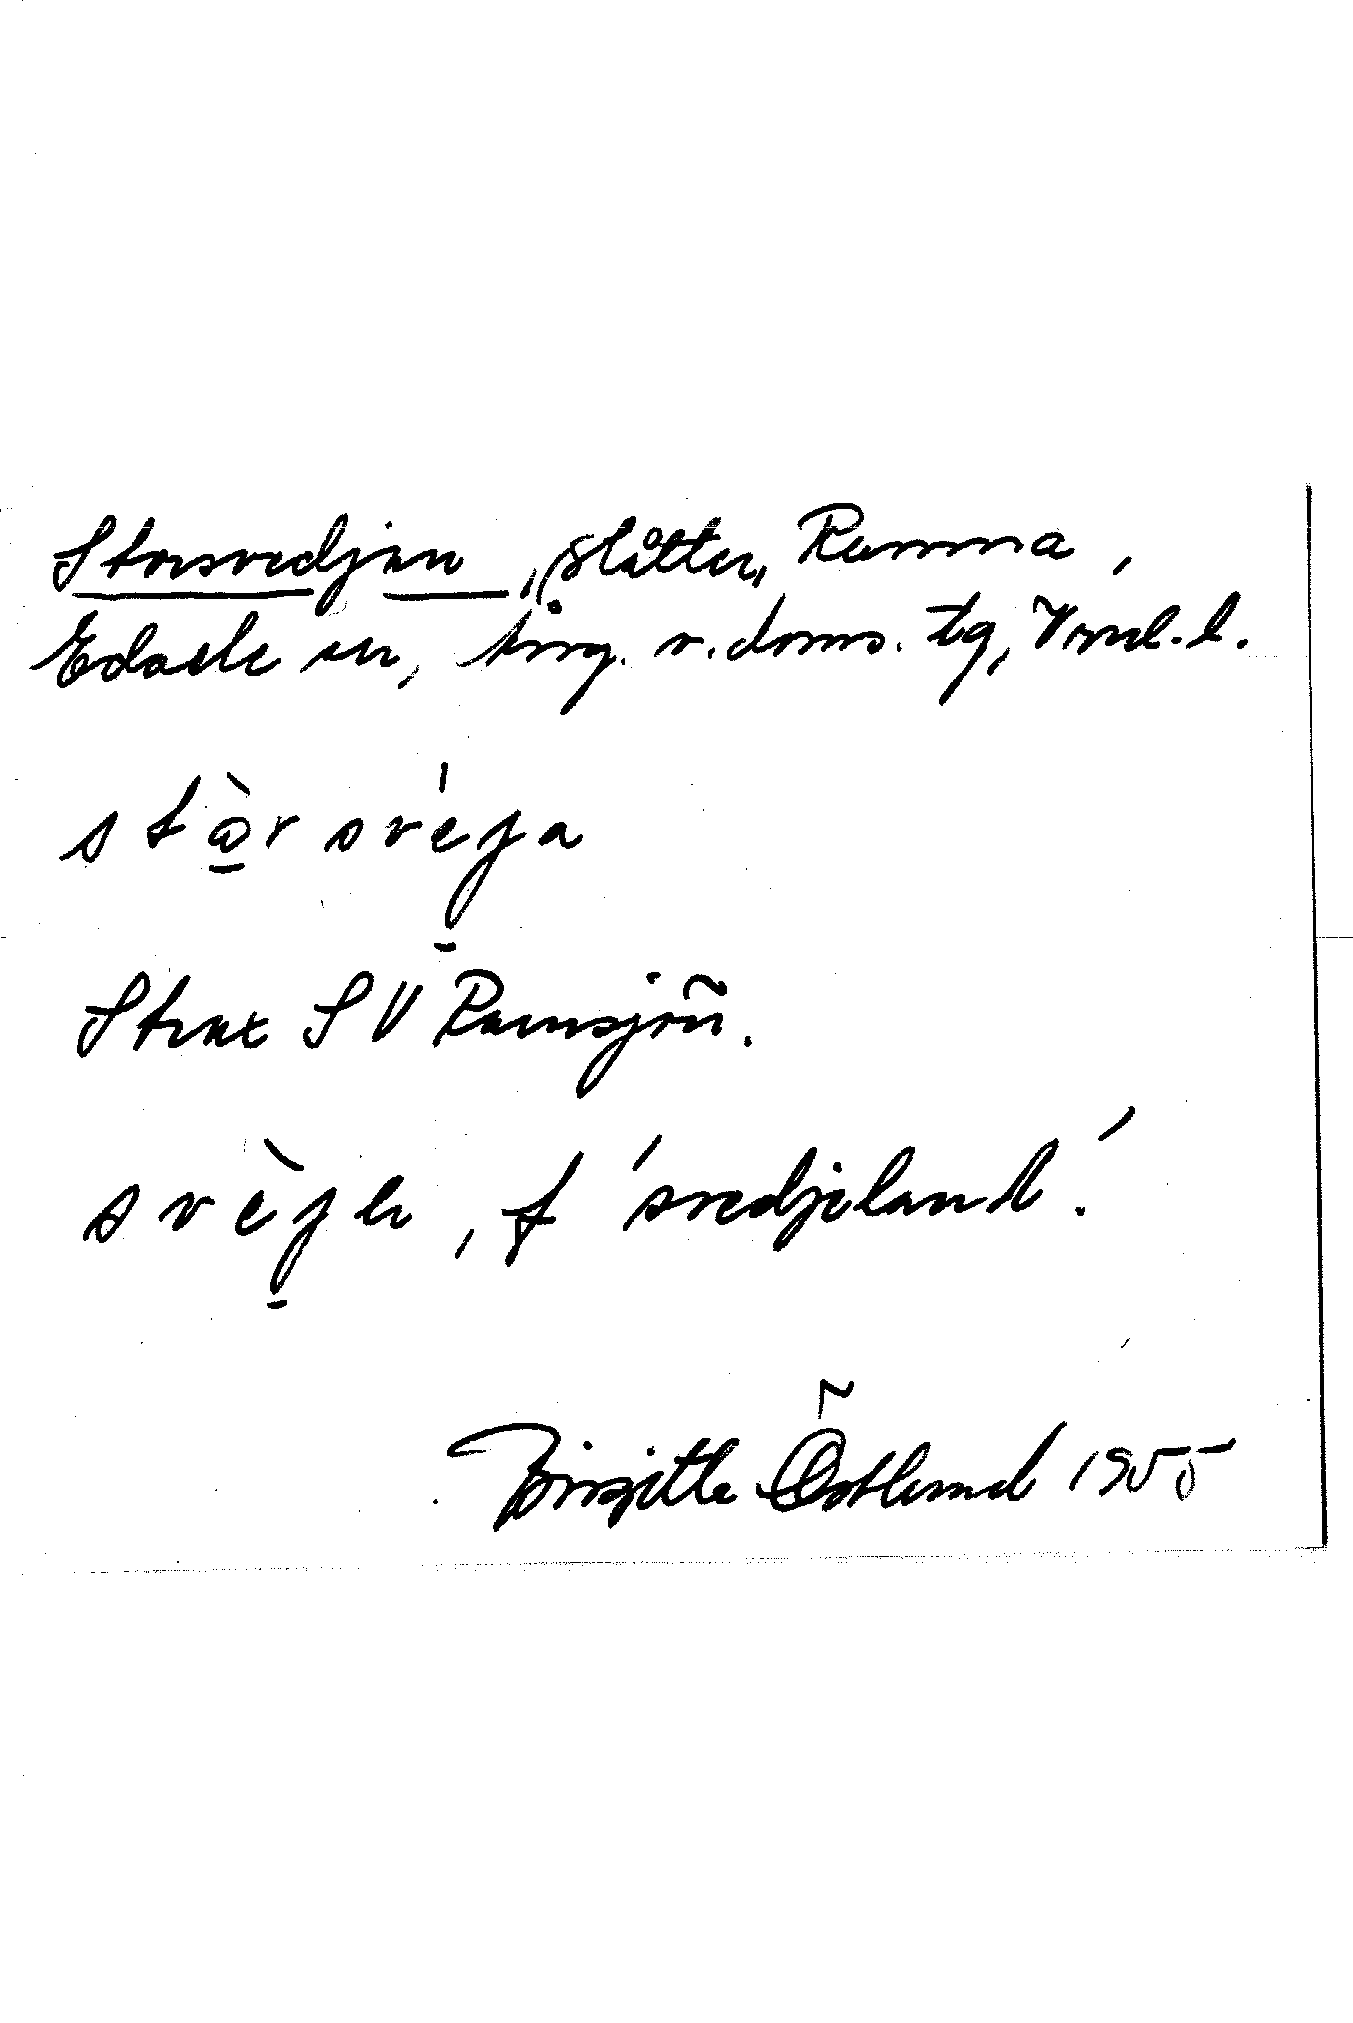 Storsvedjan, slåtter, Ramma,
Edasle sn, Ång. v. doms. tg, Vrml. l.
stòrsvéja
Strax SV Ramsjön.
svèje, f 'svedjeland'.
Birgitta Östlund 1955